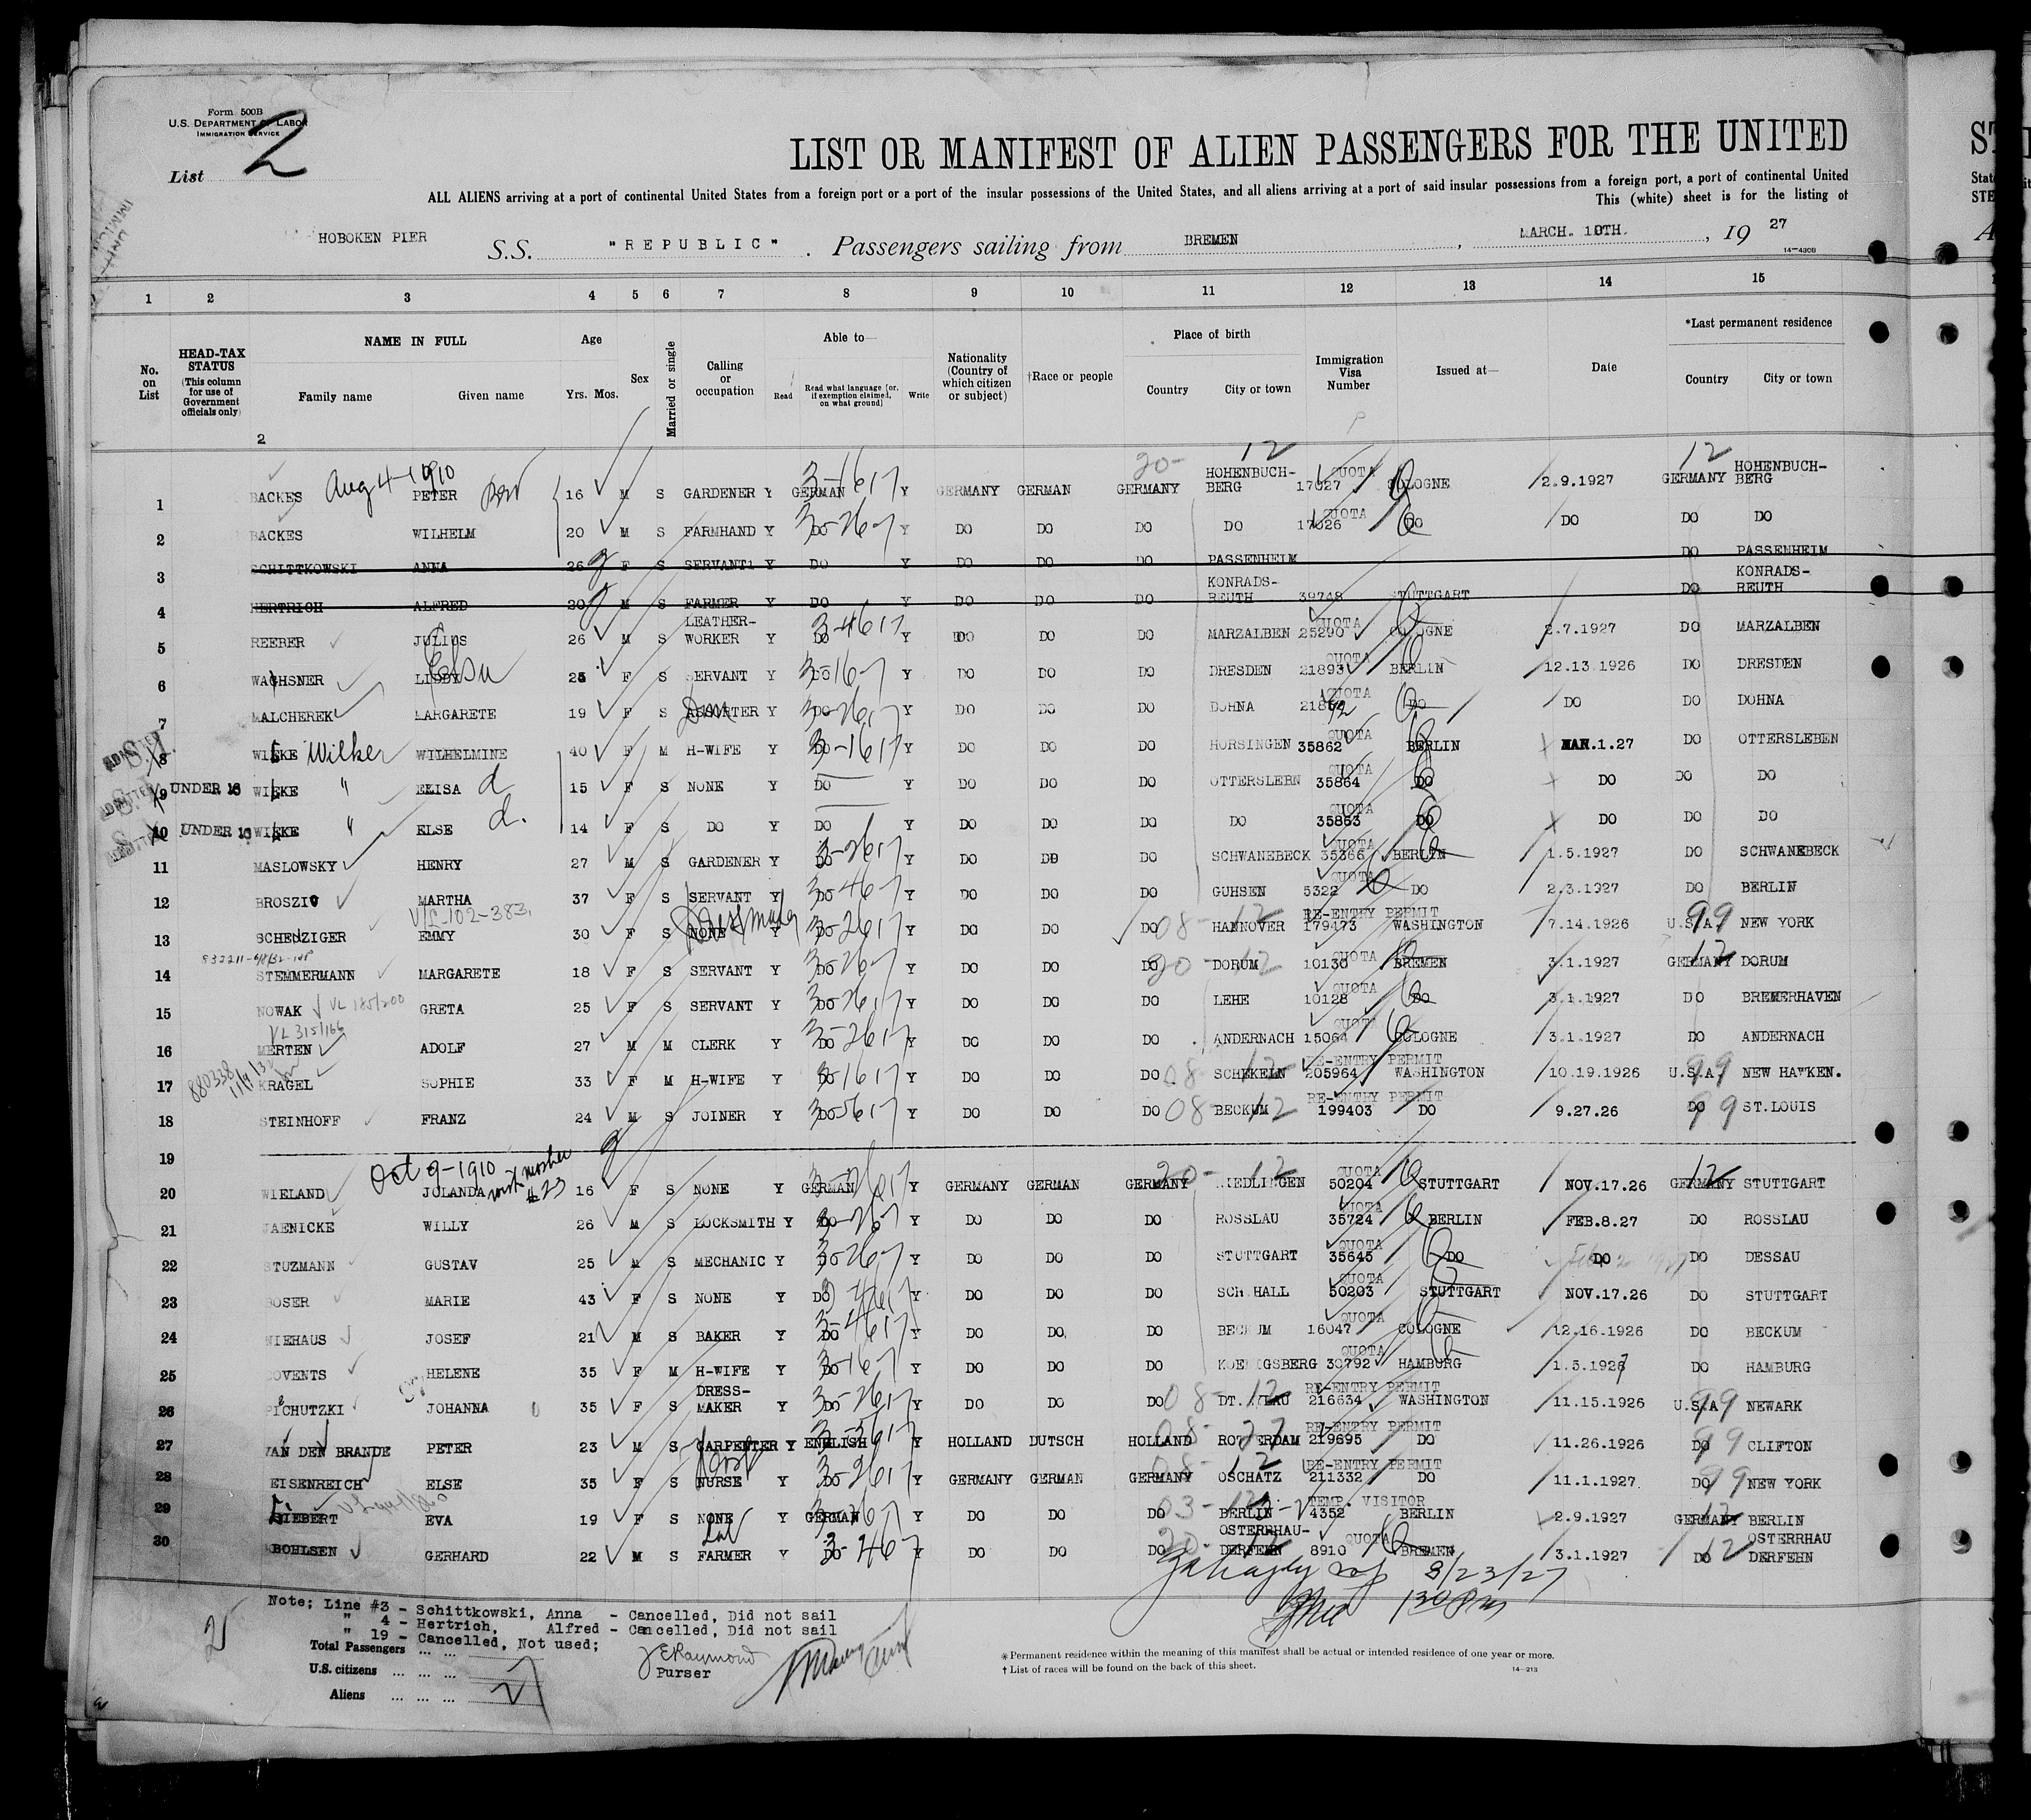 Form 500B
U.S. DEPARTMENT OF LABOR
IMMIGRATION SERVICE
List 2
LIST OR MANIFEST OF ALIEN PASSENGERS FOR THE UNITED
ALL ALIENS arriving at a port of continental United States from a foreign port or a port of the insular possessions of the United States, and all aliens arriving at a port of said insular possessions from a foreign port, a port of continental United
This (white) sheet is for the listing of
HOBOKEN PIER S.S. "REPUBLIC" . Passengers sailing from BREMEN , MARCH. 10TH. , 19 27
14—430B
1 2 3 4 5 6 7 8 9 10 11 12 13 14 15
No. on List
HEAD-TAX STATUS (This column for use of Government officials only)
NAME IN FULL Family name Given name
Age Yrs. Mos.
Sex
Married or single
Calling or occupation
Able to— Read Read what language [or, if exemption claimed, on what ground] Write
Nationality (Country of which citizen or subject)
†Race or people
Place of birth Country City or town
Immigration Visa Number
Issued at—
Date
*Last permanent residence Country City or town
2
1 BACKES Aug 4-1910 PETER 16 M S GARDENER Y GERMAN Y GERMANY GERMAN GERMANY HOHENBUCH-BERG QUOTA 17027 COLOGNE 2.9.1927 GERMANY HOHENBUCH-BERG
2 BACKES WILHELM 20 M S FARMHAND Y DO Y DO DO DO DO QUOTA 17026 DO DO DO DO
3 SCHITTKOWSKI ANNA 26 F S SERVANT Y DO Y DO DO DO PASSENHEIM DO PASSENHEIM
4 HERTRICH ALFRED 20 M S FARMER Y DO Y DO DO DO KONRADS-REUTH 39748 STUTTGART DO KONRADS-REUTH
5 REEBER JULIUS 26 M S LEATHER-WORKER Y DO Y DO DO DO MARZALBEN QUOTA 25290 COLOGNE 2.7.1927 DO MARZALBEN
6 WACHSNER 25 F S SERVANT Y DO Y DO DO DO DRESDEN QUOTA 21893 BERLIN 12.13.1926 DO DRESDEN
7 MALCHEREK MARGARETE 19 F S ASSORTER Y DO Y DO DO DO DOHNA QUOTA DO DO DO DOHNA
8 WISKE Wilker WILHELMINE 40 F M H-WIFE Y DO Y DO DO DO HORSINGEN QUOTA 35862 BERLIN MAR.1.27 DO OTTERSLEBEN
9 UNDER 16 WISKE " ELISA d 15 F S NONE Y DO Y DO DO DO OTTERSLEBN QUOTA 35864 DO DO DO DO
10 UNDER 16 WISKE " ELSE d. 14 F S DO Y DO Y DO DO DO DO QUOTA 35863 DO DO DO DO
11 MASLOWSKY HENRY 27 M S GARDENER Y DO Y DO DO DO SCHWANEBECK QUOTA 35366 BERLIN 1.5.1927 DO SCHWANEBECK
12 BROSZIO MARTHA 37 F S SERVANT Y DO Y DO DO DO GUHSEN QUOTA 5322 DO 2.3.1927 DO BERLIN
13 SCHEUZIGER V/L-102-383 EMMY 30 F S NONE Y DO Y DO DO DO HANNOVER RE-ENTRY PERMIT 179473 WASHINGTON 7.14.1926 U.S.A. NEW YORK
14 STEMMERMANN MARGARETE 18 F S SERVANT Y DO Y DO DO DO DORUM QUOTA 10130 BREMEN 3.1.1927 GERMANY DORUM
15 NOWAK VL 185/200 GRETA 25 F S SERVANT Y DO Y DO DO DO LEHE QUOTA 10128 DO 3.1.1927 DO BREMERHAVEN
VL 315/166
16 MERTEN ADOLF 27 M M CLERK Y DO Y DO DO DO ANDERNACH QUOTA 15064 COLOGNE 3.1.1927 DO ANDERNACH
17 880338 KRAGEL SOPHIE 33 F M H-WIFE Y DO Y DO DO DO SCHEKELN RE-ENTRY PERMIT 205964 WASHINGTON 10.19.1926 U.S.A. NEW HAVKEN.
18 STEINHOFF FRANZ 24 M S JOINER Y DO Y DO DO DO BECKUM RE-ENTRY PERMIT 199403 DO 9.27.26 DO ST.LOUIS
19
20 WIELAND Oct 9-1910 JOLANDA with mother #23 16 F S NONE Y GERMAN Y GERMANY GERMAN GERMANY QUOTA 50204 STUTTGART NOV.17.26 GERMANY STUTTGART
21 JAENICKE WILLY 26 M S LOCKSMITH Y DO Y DO DO DO ROSSLAU QUOTA 35724 BERLIN FEB.8.27 DO ROSSLAU
22 STUZMANN GUSTAV 25 M S MECHANIC Y DO Y DO DO DO STUTTGART QUOTA 35645 DO DO DO DESSAU
23 BOSER MARIE 43 F S NONE Y DO Y DO DO DO SCH.HALL QUOTA 50203 STUTTGART NOV.17.26 DO STUTTGART
24 NIEHAUS JOSEF 21 M S BAKER Y DO Y DO DO DO BECKUM QUOTA 16047 COLOGNE 12.16.1926 DO BECKUM
25 COVENTS HELENE 35 F M H-WIFE Y DO Y DO DO DO KOENIGSBERG QUOTA 30792 HAMBURG 1.5.1927 DO HAMBURG
26 PICHUTZKI JOHANNA 35 F S DRESS-MAKER Y DO Y DO DO DO RE-ENTRY PERMIT 216634 WASHINGTON 11.15.1926 U.S.A. NEWARK
27 VAN DEN BRANDE PETER 23 M S CARPENTER Y ENGLISH Y HOLLAND DUTSCH HOLLAND ROTTERDAM RE-ENTRY PERMIT 219695 DO 11.26.1926 DO CLIFTON
28 EISENREICH ELSE 35 F S NURSE Y DO Y GERMANY GERMAN GERMANY OSCHATZ RE-ENTRY PERMIT 211332 DO 11.1.1927 DO NEW YORK
29 SIEBERT EVA 19 F S NONE Y GERMAN Y DO DO DO BERLIN TEMP. VISITOR 4352 BERLIN 2.9.1927 GERMANY BERLIN
30 BOHLSEN GERHARD 22 M S FARMER Y DO Y DO DO DO OSTERRHAU-DERFEHN QUOTA 8910 BREMEN 3.1.1927 DO OSTERRHAU DERFEHN
3/23/27
130 Pm
Note; Line #3 - Schittkowski, Anna - Cancelled, Did not sail
" 4 - Hertrich, Alfred - Cancelled, Did not sail
" 19 - Cancelled, Not used;
Total Passengers
U.S. citizens
Aliens
JERaymond
Purser
* Permanent residence within the meaning of this manifest shall be actual or intended residence of one year or more.
† List of races will be found on the back of this sheet.
14—213